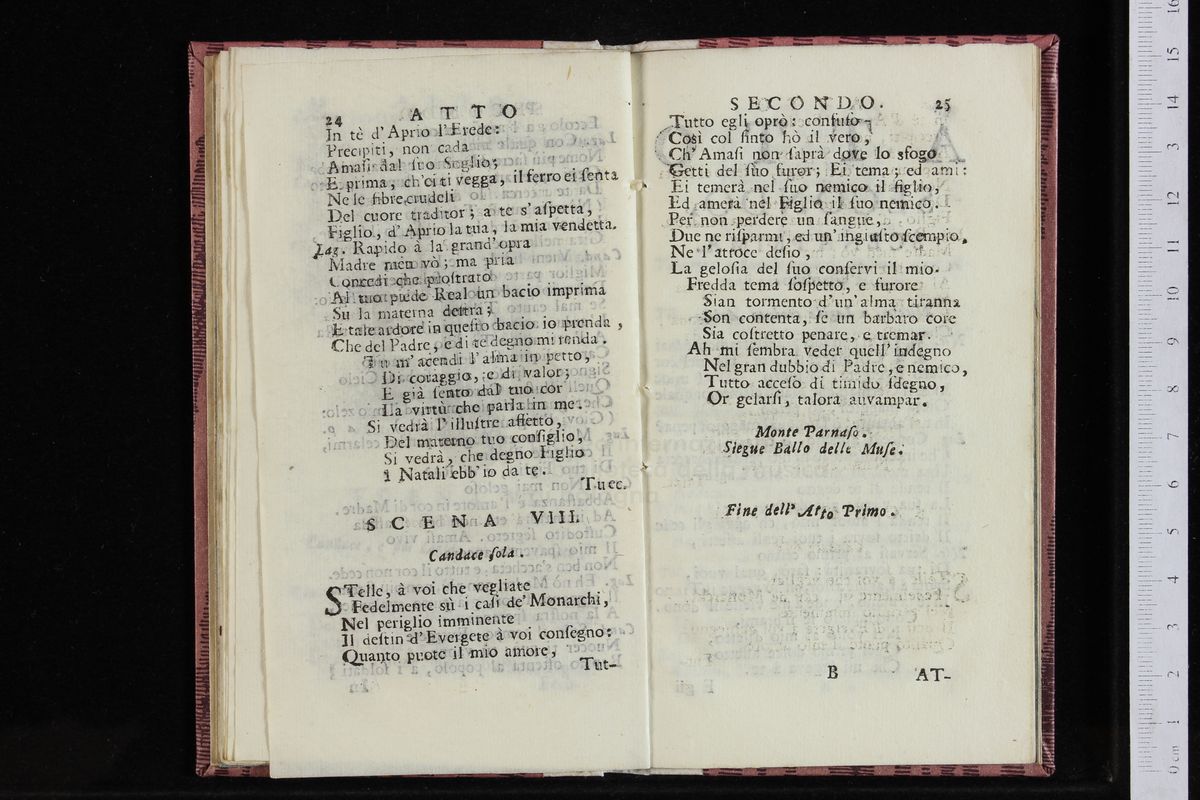 24 ATTO
In tè d'Aprio l'Erede:
Precipiti, non cada
Amasi dal suo Soglio;
E prima, ch'ei ti vegga, il ferro ei senta
Ne le fibre crudeli
Del cuore traditor; a te s'aspetta,
Figlio, d'Aprio la tua, la mia vendetta.
Lag. Rapido à la grand'opra
Madre men vò; ma pria
Concedi che prostrato
Al tuo piede Real un bacio imprima
Sù la materna destra;
E tale ardore in questo bacio io prenda,
Che del Padre, e di te degno mi renda.
Tu m'acendi l'alma in petto,
Di coraggio, e di valor;
E già sento dal tuo cor
La virtù che parla in me.
Si vedrà l'illustre affetto,
Del materno tuo consiglio,
Si vedrà, che degno Figlio
I Natali ebb'io da te.
Tu ec.
SCENA VIII.
Candace sola.
STelle, à voi che vegliate
Fedelmente sù i casi de' Monarchi,
Nel periglio imminente
Il destin d'Evergete à voi consegno:
Quanto puote il mio amore,
Tut-
SECONDO. 25
Tutto egli oprò: confuso
Così col finto hò il vero,
Ch'Amasi non saprà dove lo sfogo
Getti del sùo furor; Ei tema; ed ami:
Ei temerà nel suo nemico il figlio,
Ed amerà nel Figlio il suo nemico.
Per non perdere un sangue,
Due ne risparmi, ed un'ingiusto scempio.
Ne l'atroce desio,
La gelosia del suo conservi il mio.
Fredda tema sospetto, e furore
Sian tormento d'un'alma tiranna
Son contenta, se un barbaro core
Sia costretto penare, e tremar.
Ah mi sembra veder quell'indegno
Nel gran dubbio di Padre, e nemico,
Tutto acceso di timido sdegno,
Or gelarsi, talora auvampar.
Monte Parnaso.
Siegue Ballo delle Muse.
Fine dell'Atto Primo.
B AT-